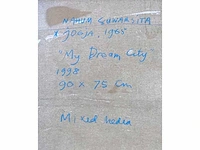 NAHUM GUWARSITA
JOGJA, 1965
"My Dream City"
1998
90 x 75 Cm
Mixed Media